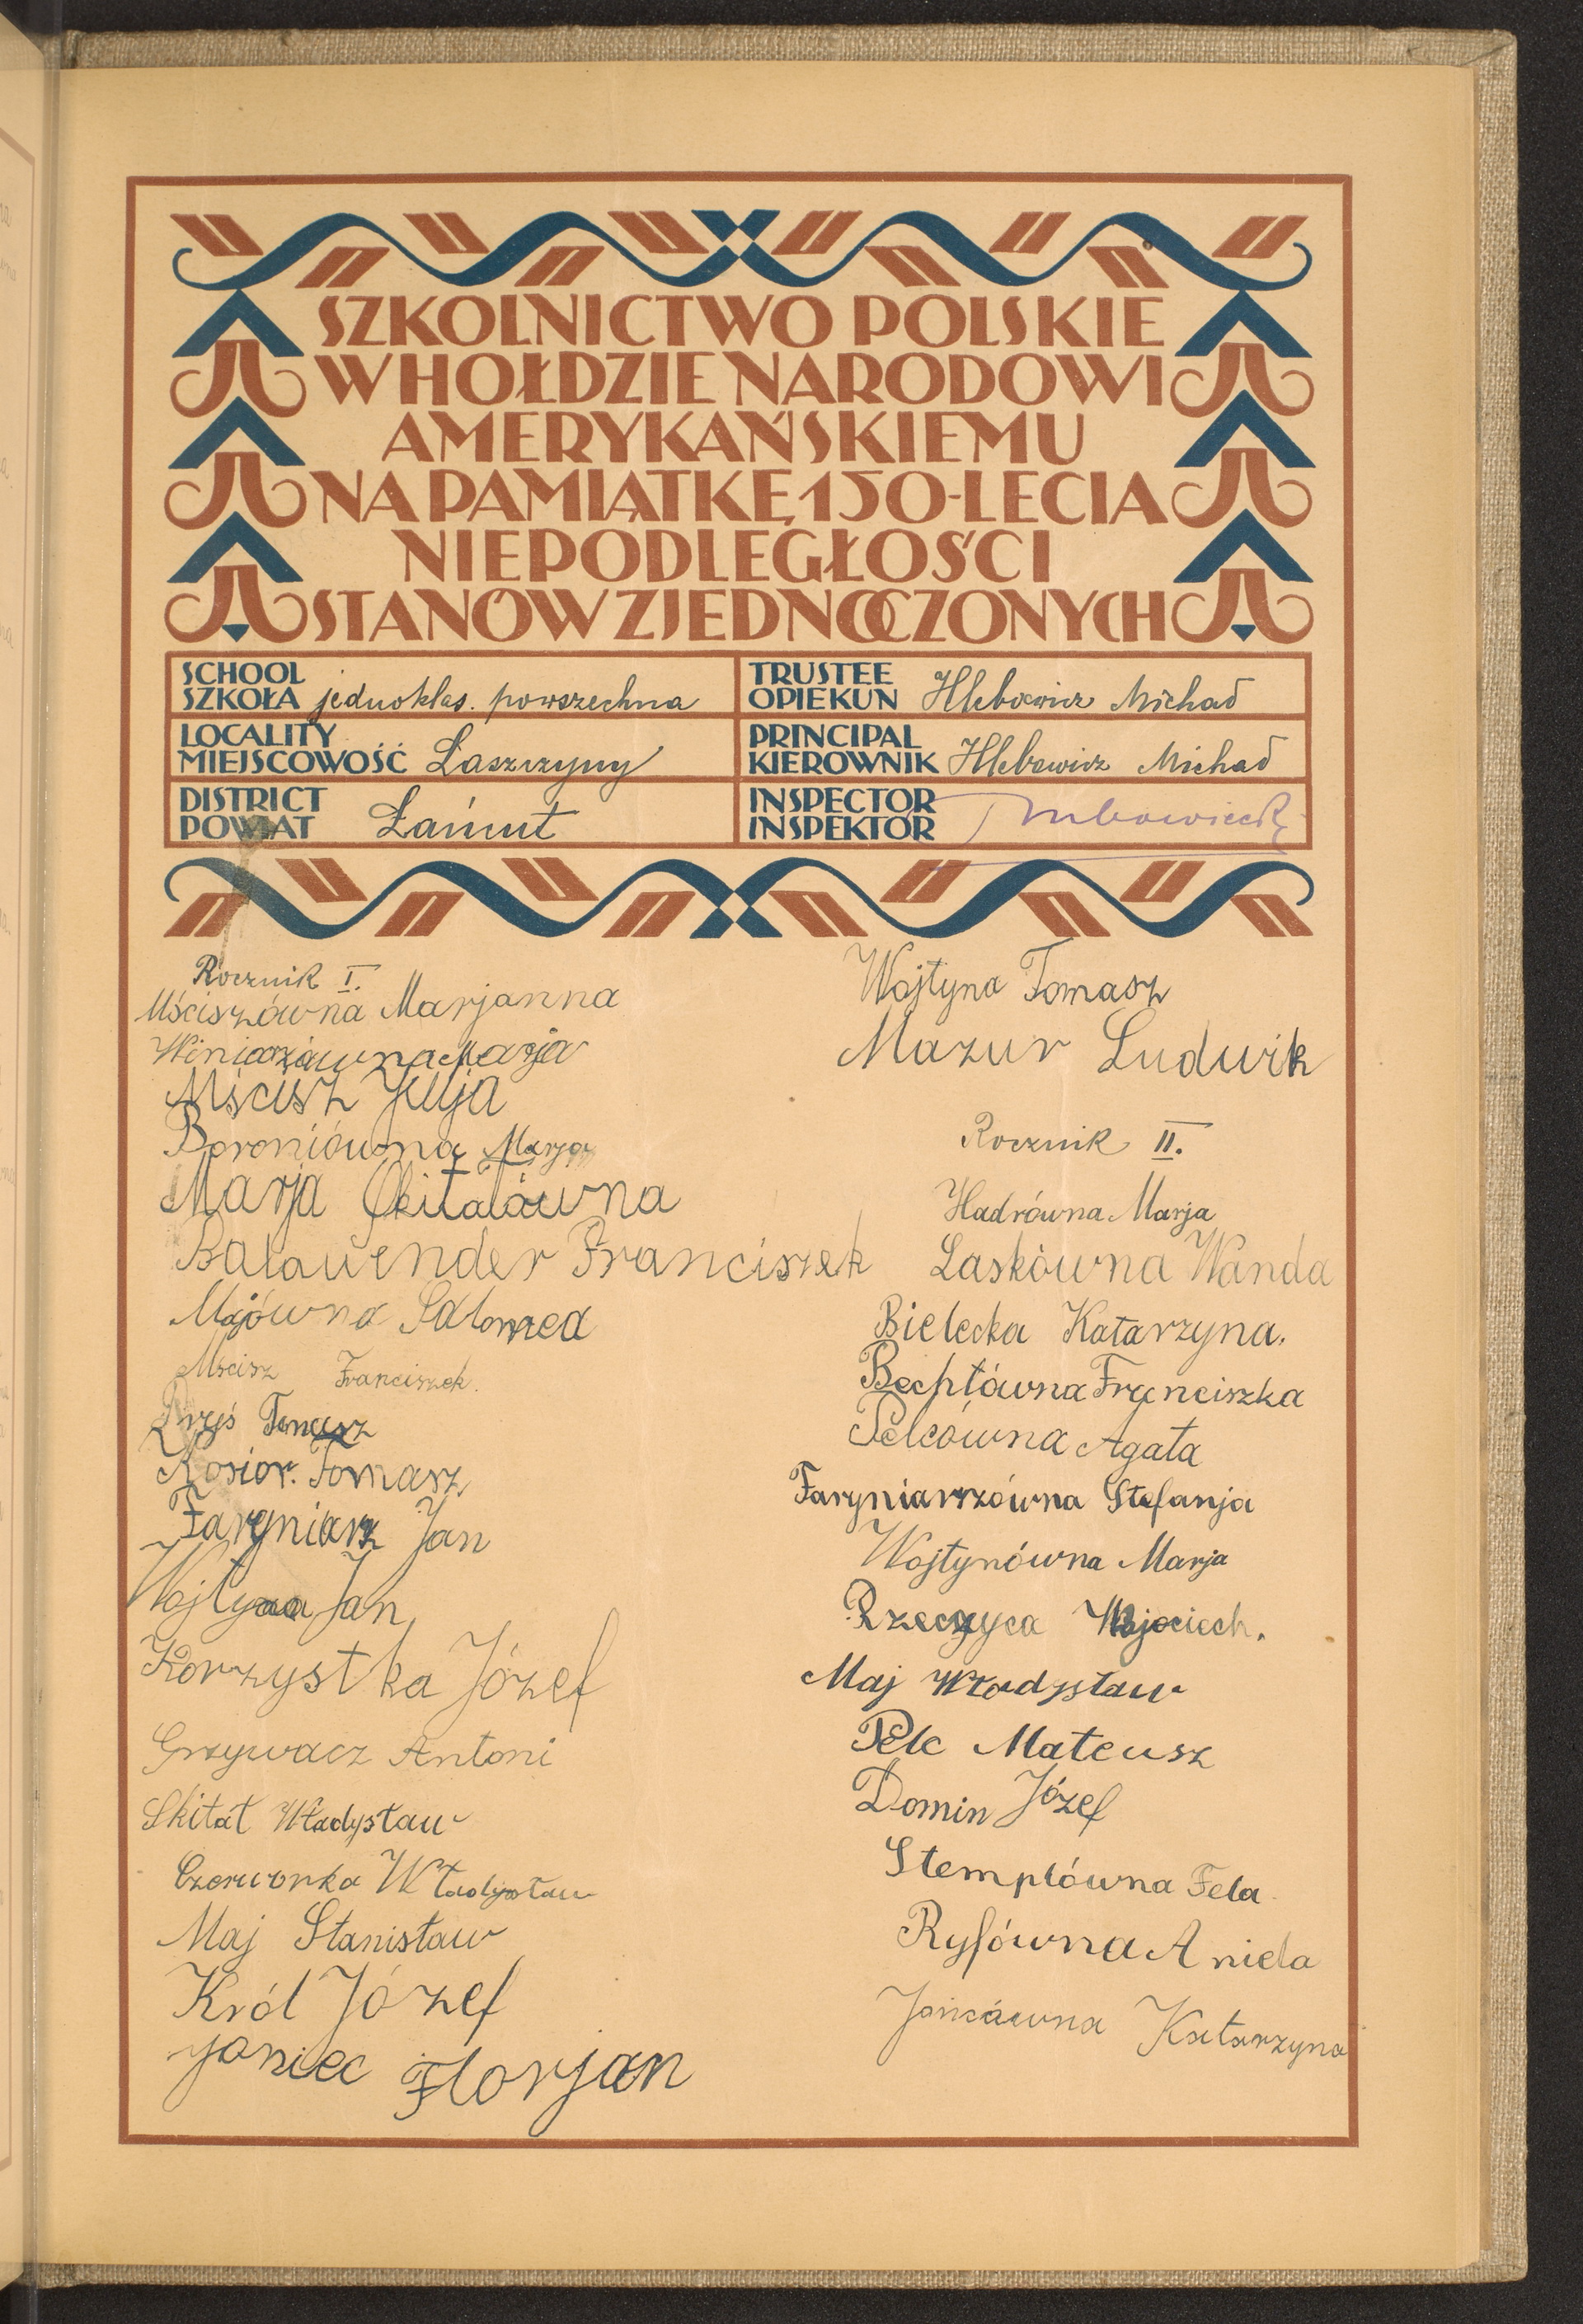 SZKOLNICTWO POLSKIE
W HOŁDZIE NARODOWI
AMERYKAŃSKIEMU
NA PAMIĄTKĘ 150-LECIA
NIEPODLEGŁOŚCI
STANÓW ZJEDNOCZONYCH
SCHOOL
SZKOŁA jednoklas. powszechna
TRUSTEE
OPIEKUN Hlebowicz Michał
LOCALITY
MIEJSCOWOŚĆ Łaszczyny
PRINCIPAL
KIEROWNIK Hlebowicz Michał
DISTRICT
POWIAT Łańcut
INSPECTOR
INSPEKTOR
Rocznik I.
Mściszówna Marjanna
Winiarzówna Marja
Mścisz Julja
Baroniówna Marja
Marja Skitałówna
Balawender Franciszek
Majówna Salomea
Mścisz Franciszek.
Tomasz
Kosior. Tomasz
Faryniarz Jan
Wojtyna Jan
Korzystka Józef
Grzywacz Antoni
Skitał Władysław
Czerwonka Władysław
Maj Stanisław
Król Józef
Janiec Florjan
Wojtyna Tomasz
Mazur Ludwik
Rocznik II.
Hadrówna Marja
Laskówna Wanda
Bielecka Katarzyna.
Bechtówna Franciszka
Pelcówna Agata
Faryniarzówna Stefanja
Wojtynówna Marja
Rzeczyca Wojciech.
Maj Władysław
Pelc Mateusz
Domin Józef
Stemplówna Fela
Ryfówna Aniela
Jańcówna Katarzyna